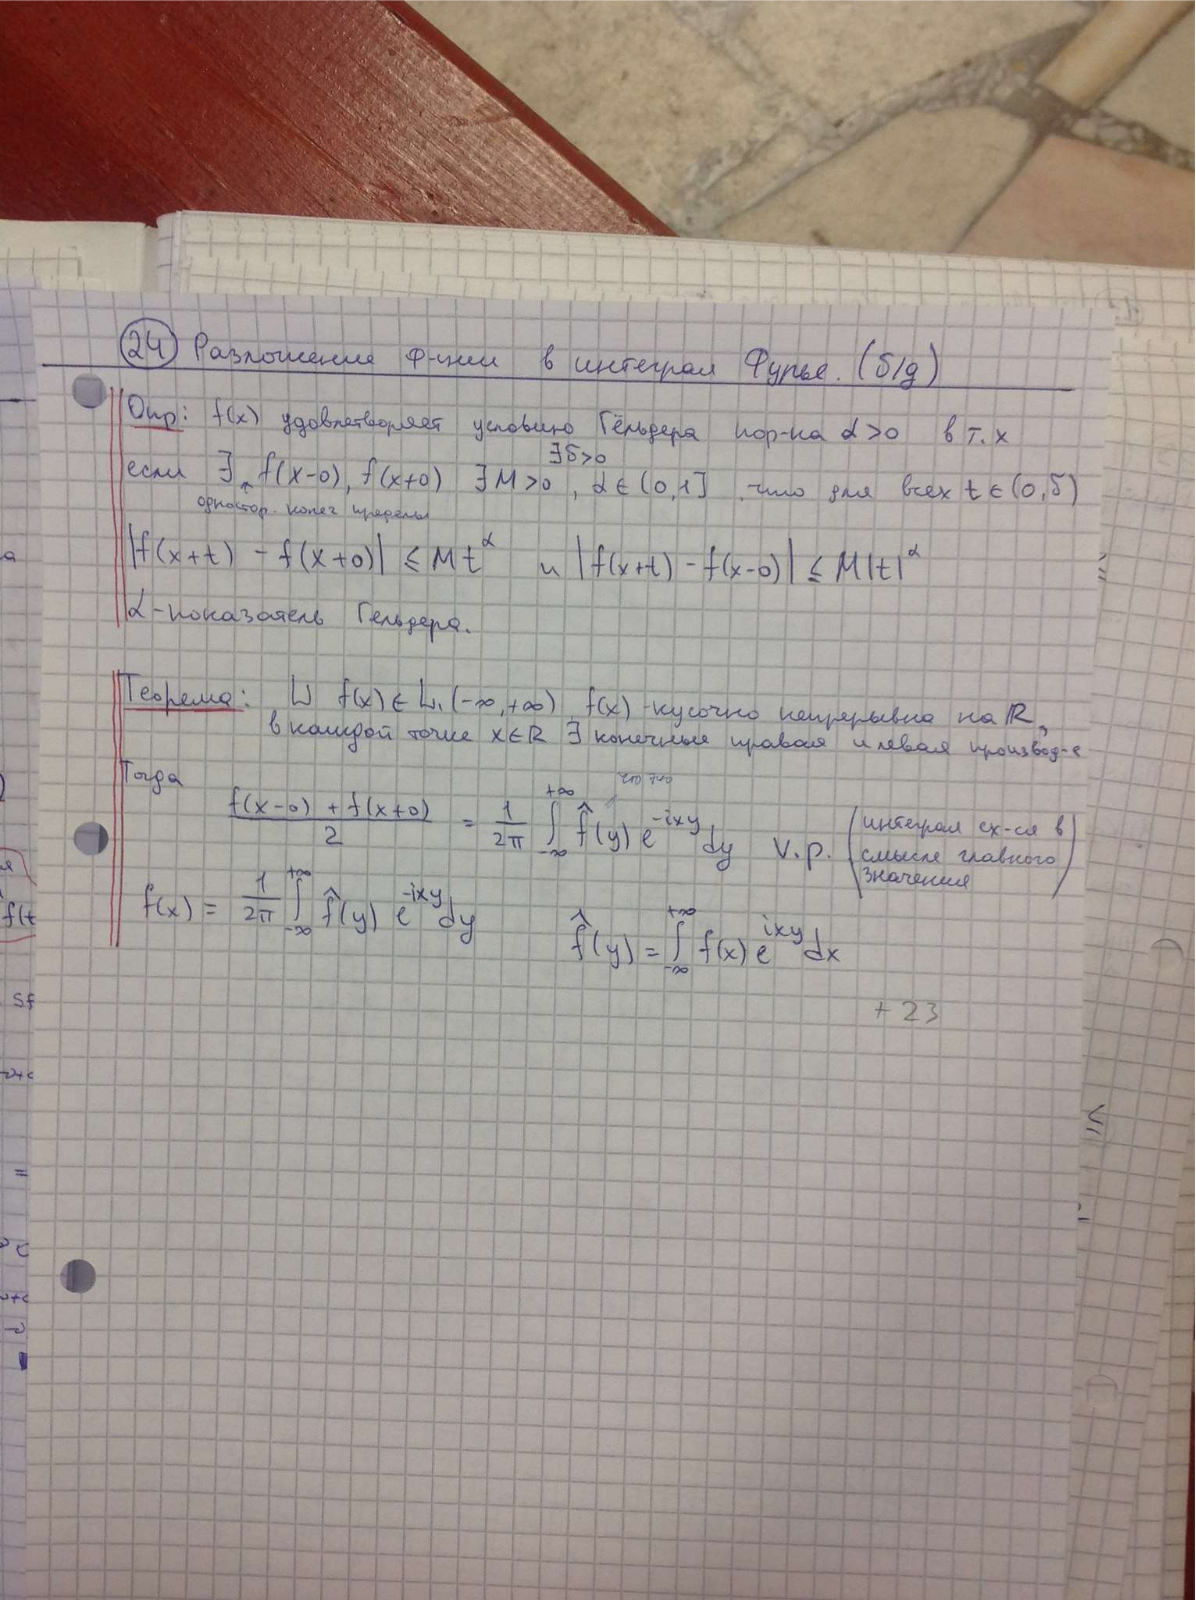 24 Разложение ф-ции в интеграл Фурье. (б/д)
Опр: f(x) удовлетворяет условию Гёльдера пор-ка α>0 в т. x
∃δ>0
если ∃ f(x-0), f(x+0) ∃ M>0, α∈(0,1], что для всех t∈(0,δ)
одностор. конеч пределы
|f(x+t) - f(x+0)| ≤ M t^α и |f(x+t) - f(x-0)| ≤ M|t|^α
α-показатель Гельдера.
Теорема: ⊔ f(x) ∈ L₁(-∞,+∞) f(x) - кусочно непрерывна на ℝ,
в каждой точке x∈ℝ ∃ конечные правая и левая производ-е
Тогда
что это
(f(x-0) + f(x+0))/2 = 1/2π ∫_{-∞}^{+∞} f̂(y) e^{-ixy} dy v.p. (интеграл сх-ся в
смысле главного
значения)
f(x) = 1/2π ∫_{-∞}^{+∞} f̂(y) e^{-ixy} dy f̂(y) = ∫_{-∞}^{+∞} f(x) e^{ixy} dx
+ 23